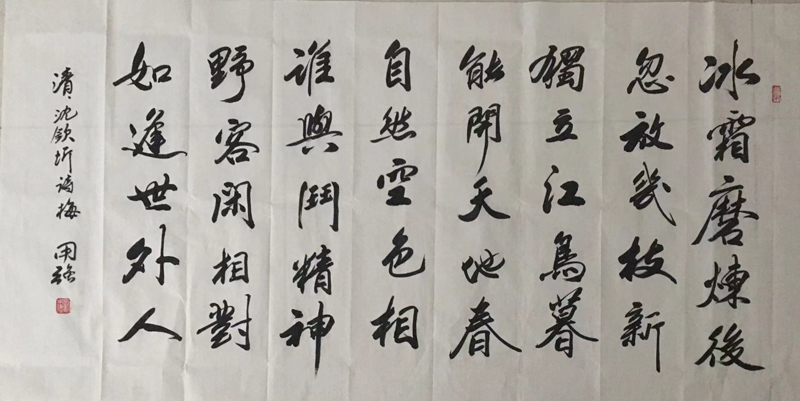 冰霜磨煉後
忽放幾枝新
獨立江島暮
能開天地春
自然空色相
誰與鬥精神
野客閑相對
如逢世外人
清沈欽圻詩梅